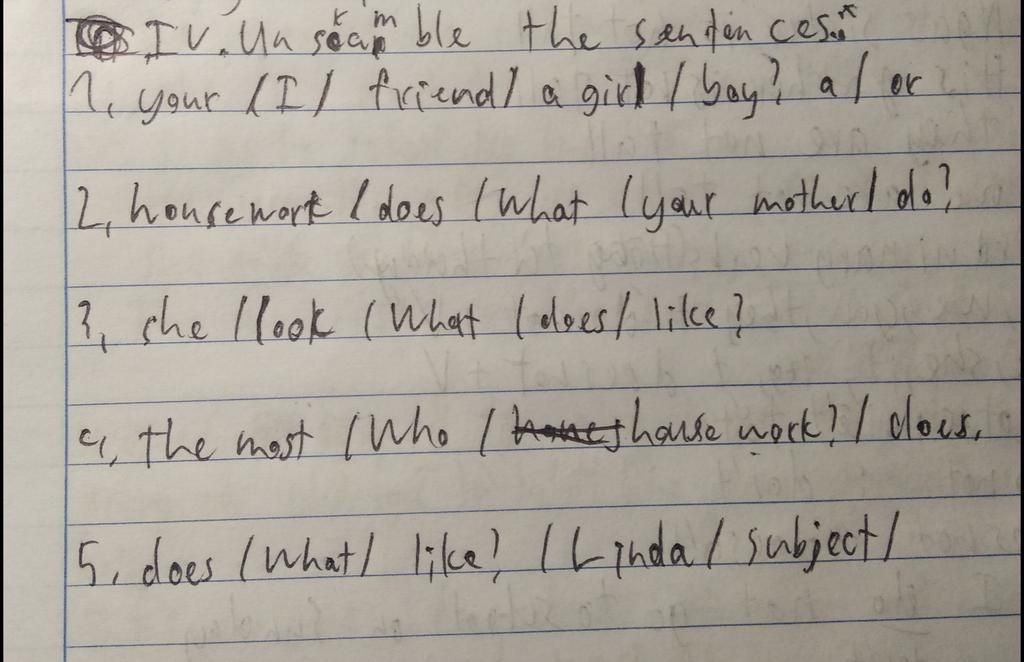 IV. Unscramble the sentences.*
1, your / I / friend / a girl / boy? a / or
2, housework / does / What / your mother / do?
3, she / look / What / does / like?
4, the most / Who / house work? / does.
5, does / What / like? / Linda / subject /